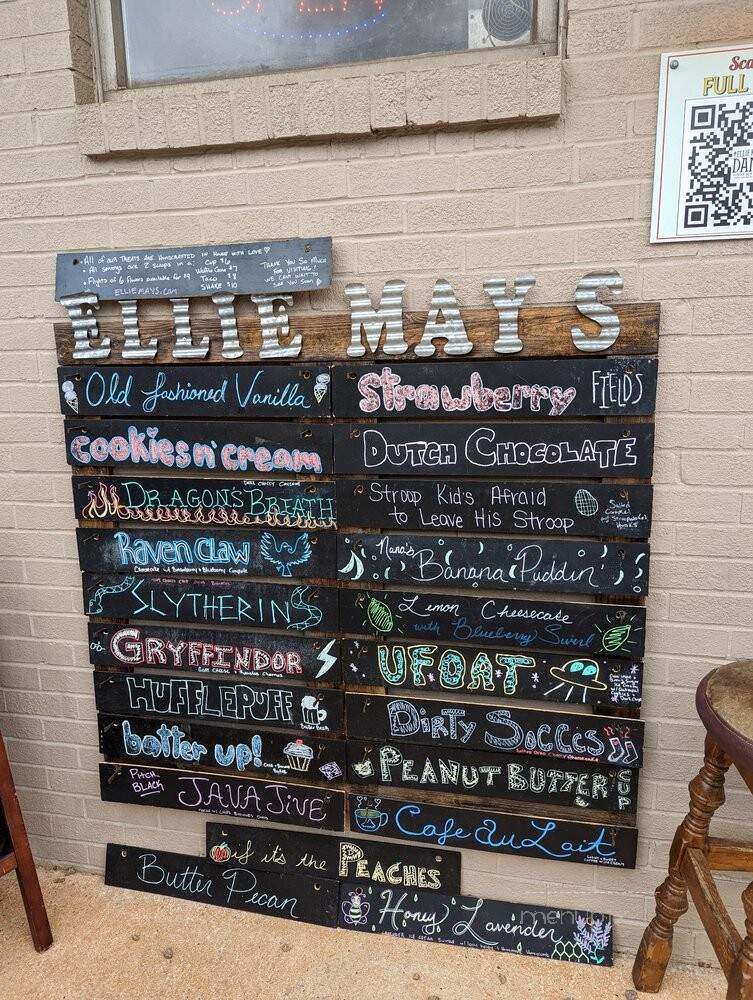 Sca
FULL
DAN
• All of our treats are handcrafted in house with love
• All servings are 2 scoops in a: Cup $6
Waffle Cone $7
• Flights of 6 flavors available for $9 Taco $8
Shake $10
ELLIEMAYS.com
THANK YOU SO MUCH
FOR VISITING!
WE CAN'T WAIT TO
SEE YOU SOON
ELLIE MAY S
Old fashioned Vanilla
Strawberry FIELDS
Cookies n' cream
DUTCH CHOCOLATE
DRAGON'S BREATH
Stroop Kid's Afraid
to Leave His Stroop
Salted
Caramel
Raven Claw
Nana's Banana Puddin'
SLYTHERIN
Lemon Cheesecake
with Blueberry Swirl
GRYFFINDOR
UFOAT
HUFFLEPUFF
Butter Beer
DIRTY SOCCCS
batter up!
PEANUT BUTTER CUP
PITCH
BLACK JAVA JIVE
Cafe au Lait
if it's the PEACHES
Butter Pecan
Honey Lavender
menupix